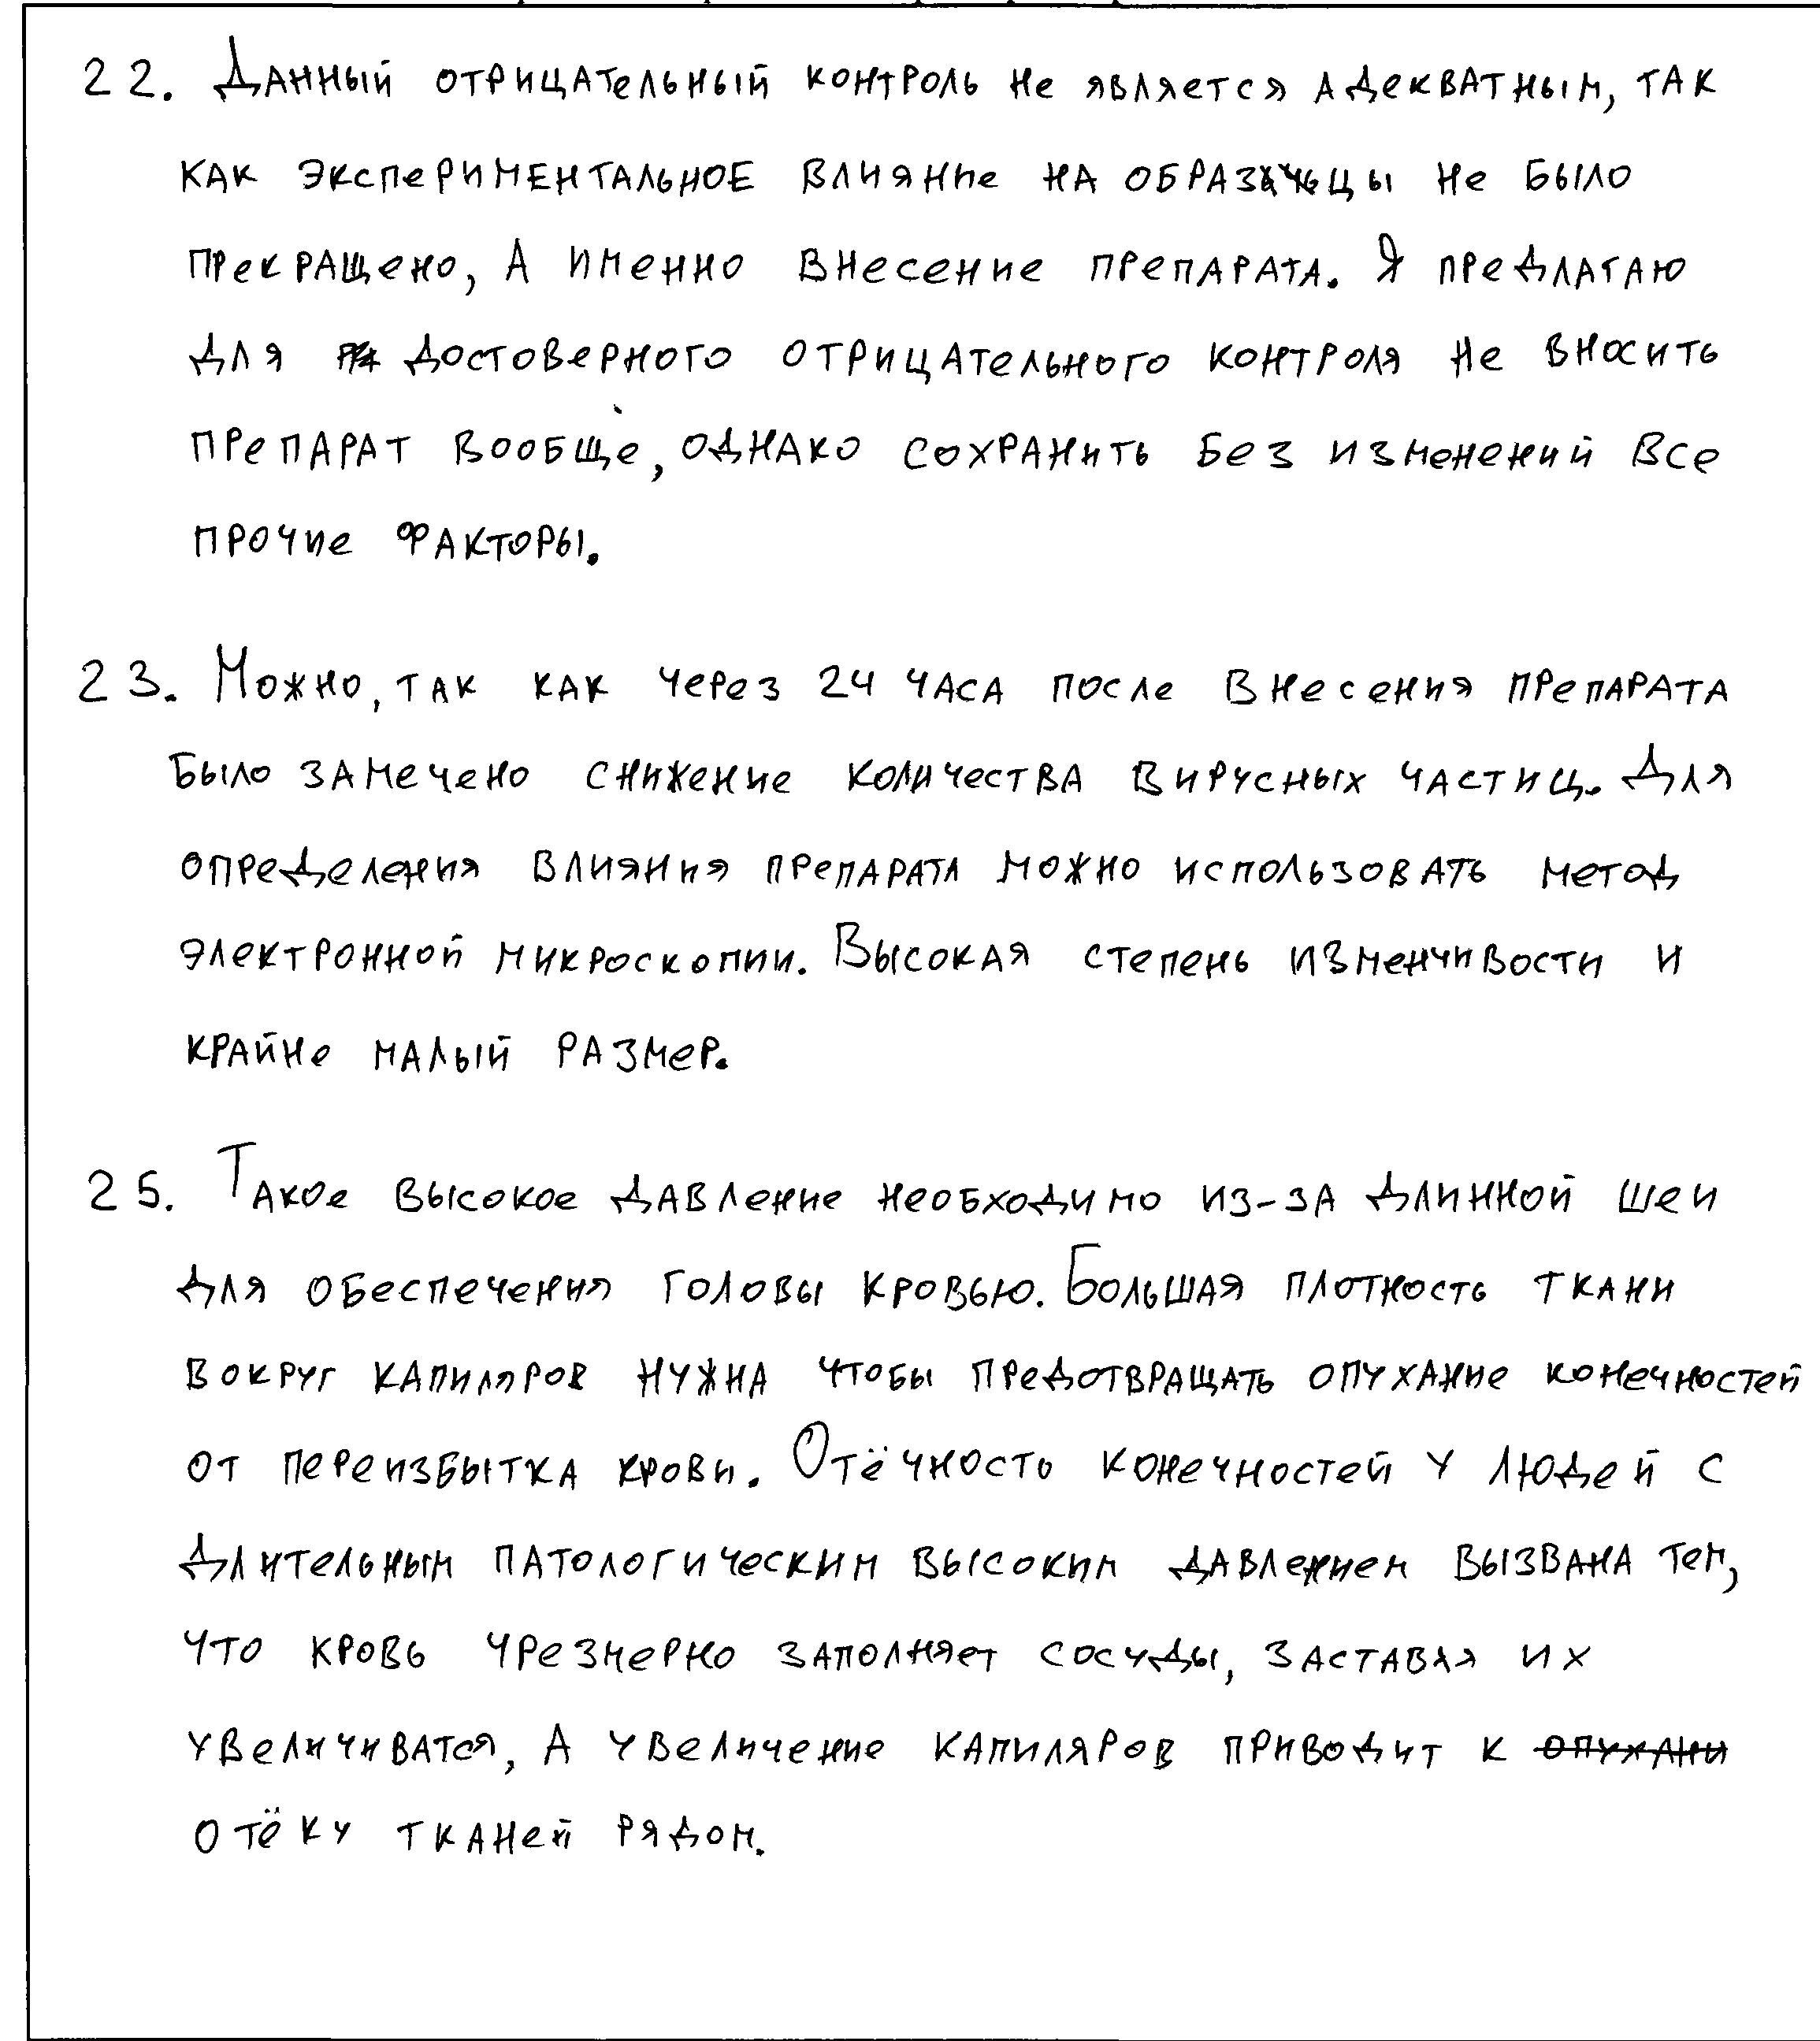 22. Данный отрицательный контроль не является адекватным, так
как экспериментальное влияние на образцы не было
прекращено, а именно внесение препарата. Я предлагаю
для достоверного отрицательного контроля не вносить
препарат вообще, однако сохранить без изменений все
прочие факторы.
23. Можно, так как через 24 часа после внесения препарата
было замечено снижение количества вирусных частиц. Для
определения влияния препарата можно использовать метод
электронной микроскопии. Высокая степень изменчивости и
крайне малый размер.
25. Такое высокое давление необходимо из-за длинной шеи
для обеспечения головы кровью. Большая плотность ткани
вокруг капиляров нужна чтобы предотвращать опухание конечностей
от переизбытка крови. Отёчность конечностей у людей с
длительным патологическим высоким давлением вызвана тем,
что кровь чрезмерно заполняет сосуды, заставляя их
увеличиватся, а увеличение капиляров приводит к опухани
отёку тканей рядом.